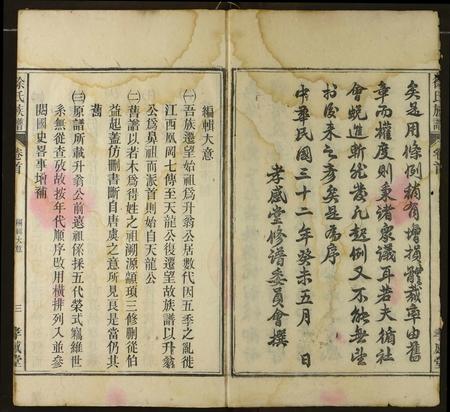 矣是用條例稍有增損體裁率由舊
章而權度則秉諸衆議耳若夫循社
會蛻進斬絶發凡起例又不能無望
於後來之彥矣是爲序
中華民國三十二年癸未五月 日
孝感堂修譜委員會撰
徐氏族譜
卷首
編輯大意
三
孝感堂
編輯大意
㈠吾族遷望始祖爲升翁公居數代因五季之亂徙
江西凰岡七傳至天龍公復遷望故族譜以升翁
公爲鼻祖而派首則始自天龍公
㈡舊譜以若木爲得姓之祖溯源顓頊三修刪從伯
益起蓋仿刪書斷自唐虞之意所見良是當仍其
舊
㈢原譜所載升翁公前遠祖係採五代榮式寫維世
系無從查攷故按年代順序改用橫排列入並參
閱國史畧事增補